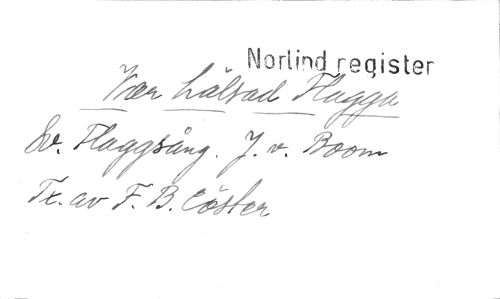 Norlind register
Var hälsad Flagga
Sv. Flaggsång. J. v. Boom
Tx. av F. B. Cöster